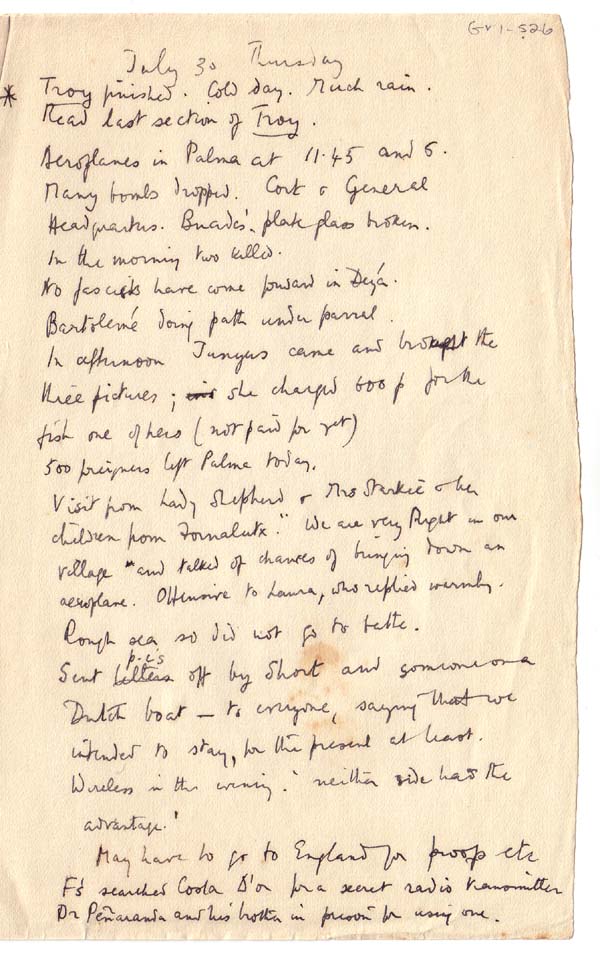 Gv 1-526
July 30 Thursday
* Troy finished. Cold day. Much rain.
Read last section of Troy.
Aeroplanes in Palma at 11.45 and 6.
Many bombs dropped. Cort & General
Headquarters. Buades' plate glass broken.
In the morning two killed.
No fascists have come forward in Deyá.
Bartolemé doing path under parral.
In afternoon Junyers came and brought the
three pictures; she charged 600 p for the
fish one of hers (not paid for yet)
500 foreigners left Palma today.
Visit from Lady Shepherd & Mrs Starkie & her
children from Fornalutx. "We are very Right in our
village" and talked of chances of bringing down an
aeroplane. Offensive to Laura, who replied warmly.
Rough sea so did not go to bathe.
p.c's
Sent letters off by Short and someone on a
Dutch boat — to everyone, saying that we
intended to stay, for the present at least.
Wireless in the evening: 'neither side has the
advantage.'
May have to go to England for proofs etc
F's searched Coola D'or for a secret radio transmitter
Dr Peñaranda and his brother in prison for using one.